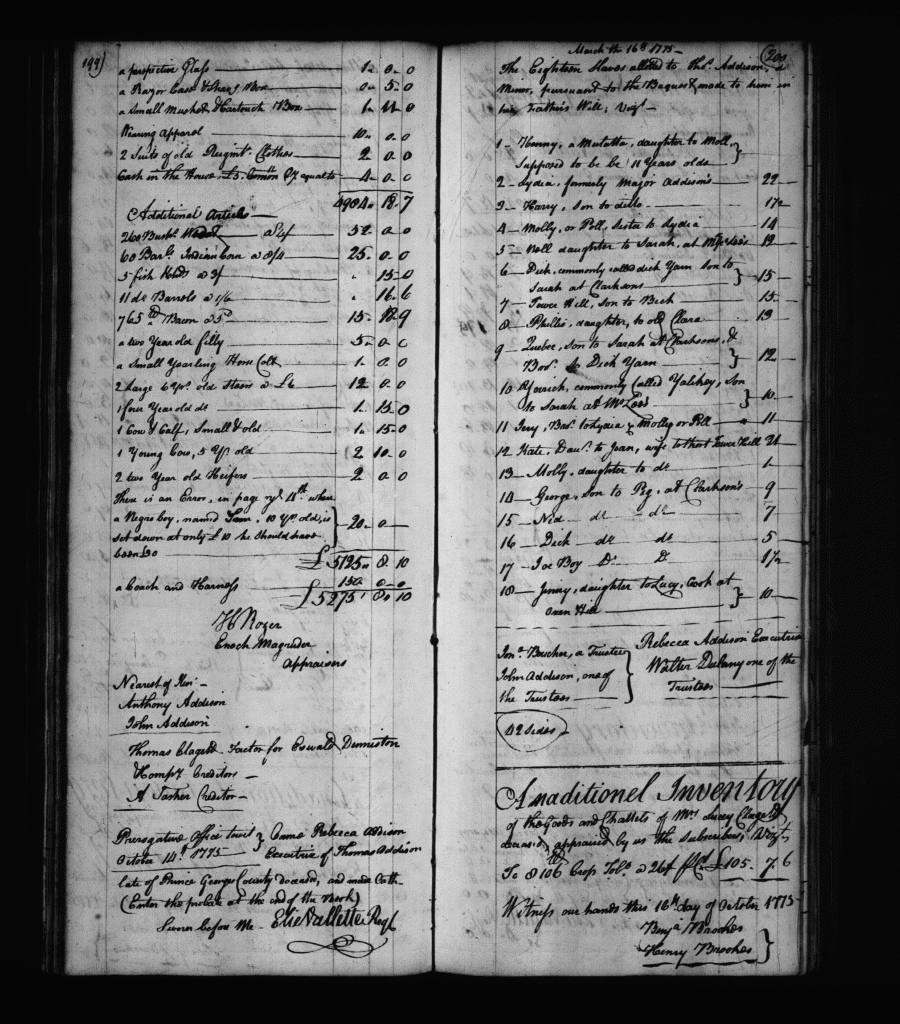 199)
a perspective Glass 1 " 0 " 0
a Razor Case & Shavg Box 0 " 5 " 0
a Small Musket & Cartouch Box 1 " 0
Wearing Apparel 10 " 0 " 0
2 Suits of old Regimt. Clothes 2 " 0 " 0
Cash in the House £5. Comon Cy equal to 4 " 0 " 0
4984 " 18 " 7
Additional Articles
260 Bushs. Wheat a 4/ 52 " 0 " 0
60 Barls. Indian Corn a 8/4 25 " 0 " 0
5 fish Hhds a 3/ " 15 " 0
11 do Barrels a 1/6 " 16 " 6
765 lb Bacon a 5d 15 " 18 " 9
a two Year old filly 5 " 0 " 0
a Small Yearling Horse Colt 1 " 0 " 0
2 Large 6 Yrs. old Steers a £6 12 " 0 " 0
1 four Year old do 1 " 15 " 0
1 Cow & Calf, Small & old 1 " 15 " 0
1 Young Cow, 5 Yrs old 2 " 10 " 0
2 two Year old Heifers 2 " 0 " 0
There is an Error, in page 4th where
a Negro boy, named Sam, 10 Yrs old, is
set down at only £10 he Should have
been £30 20 " 0 "
£5125 " 8 " 10
a Coach and Harness 150 " 0 " 0
£5275 " 8 " 10
H Rozer
Enoch Magruder
Appraisers
Nearest of Kin
Anthony Addison
John Addison
Thomas Clagett Factor for Oswald Denniston
& Compy Creditors
A Tasker Creditor
Prerogative Office to wit } Came Rebecca Addison
October 14th 1775 Executrix of Thomas Addison
late of Prince Georges County deceased, and made Oath
(Enter the probate at the end of the Book)
Sworn before Me Elie Vallette Regr
March the 16th 1775
(200
The Eighteen Slaves alloted to Thos. Addison, a
Minor, pursuant to the Bequest made to him in
his Father's Will; Vizt.
1 Henny, a Mulatta, daughter to Moll,
Supposed to be 11 Years olde }
2 Lydia, formerly Major Addison's 22
3 Harry, Son to ditto 1 1/2
4 Molly, or Poll, Sister to Lydia 14
5 Nell daughter to Sarah, at 12
6 Dick, commonly called dick Yarn Son to
Sarah at Clarksons } 15
7 Tower Hill, Son to Beck 15
8 Phillis, daughter, to old Clara 13
9 Quebec, Son to Sarah at Clarksons, &
Bror. to Dick Yarn } 12
10 Yorrick, commonly called Yalikey, Son
to Sarah at Mr Lees } 10
11 Jery, Bror. to Lydia & Molly or Poll 11
12 Kate, Daur. to Joan, wife to Tower Hill 21
13 Molly, daughter to do 1
14 George, Son to Peg, at Clarksons 9
15 Ned do do 7
16 Dick do do 5
17 Joe Boy Do D 1 1/2
18 Jenny, daughter to Lucy, Cook at
Oxen Hill } 10
Jona. Boucher, a Trustee
John Addison, one of
the Trustees }
Rebecca Addison Executrix
Walter Dulany one of the
Trustees
42 Sides
An additionel Inventory
of the Goods and Chattels of Mrs Lucey Clagett
deceasd, appraised by us the Subscribers, Vizt,
To 8106 Crop Tobo. a 26/ £105 " 7 " 6
Witness our hands this 16th day of October 1775
Benja Brookes
Henry Brookes }